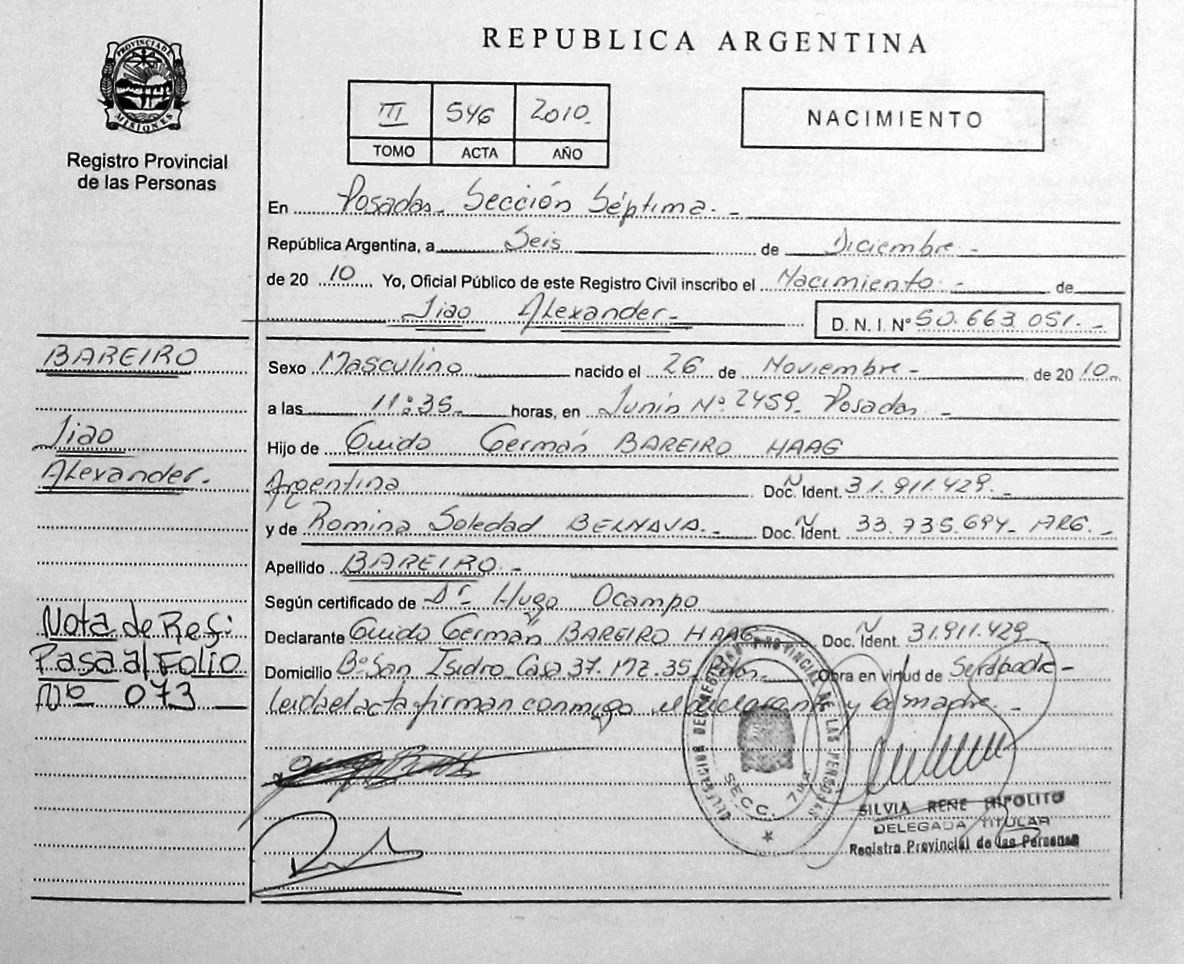 REPUBLICA ARGENTINA
PROVINCIA DE MISIONES
Registro Provincial
de las Personas
III 546 2010.
TOMO ACTA AÑO
NACIMIENTO
En Posadas. Sección Séptima. -
República Argentina, a Seis de Diciembre -
de 20 10 Yo, Oficial Público de este Registro Civil inscribo el Nacimiento. - de
Tiao Alexander. -
D. N. I. N° 50.663 051. -
BAREIRO
Tiao
Alexander. -
Sexo Masculino nacido el 26 de Noviembre - de 20 10.
a las 11:35 horas, en Junín Nº 2459. Posadas -
Hijo de Guido Germán BAREIRO HAAG
Argentina Doc. Ident. 31.911.429. -
y de Romina Soledad BERNAVA. - Doc. Ident. 33.735.694- ARG. -
Apellido BAREIRO. -
Según certificado de Dr. Hugo Ocampo
Declarante Guido Germán BAREIRO HAAG Doc. Ident. 31.911.429
Domicilio Bº San Isidro Casa 37. Mz. 35 Obra en virtud de Ser padre -
Leida el acta firman conmigo el declarante y la madre. -
Nota de Ref:
Pasa al Folio
Nº 073
DEL REGISTRO PROVINCIAL DE LAS PERSONAS
SECC. 7ma
SILVIA RENE HIPOLITO
DELEGADA TITULAR
Registro Provincial de las Personas